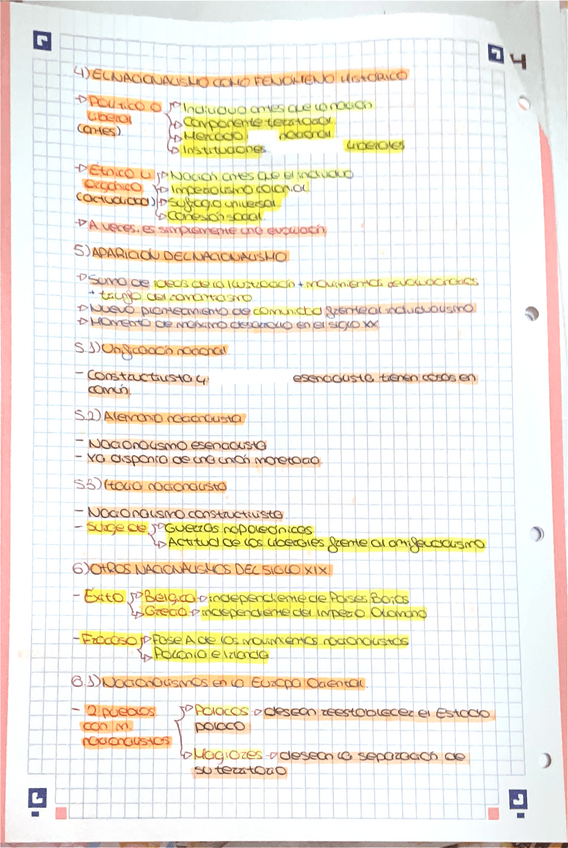 4
4) EL NACIONALISMO COMO FENOMENO HISTÓRICO
Político o Individuo antes que la nación
Liberal Componente territorial
(antes) Mercado nacional
Instituciones Liberales
Étnico u Nación antes que el individuo
Orgánico Imperialismo colonial
(actualidad) Sufragio universal
Conexión social
A veces, es simplemente una evolución
5) APARICIÓN DEL NACIONALISMO
Suma de ideas de la Ilustración + movimientos revolucionarios
+ influjo del romanticismo
Nuevo planteamiento de comunidad frente al individualismo
Momento de máximo desarrollo en el siglo XX
5.1) Unificación nacional
- Constructivista y esencialista tienen cosas en
común
5.2) Alemania nacionalista
- Nacionalismo esencialista
- Ya disponía de una unión monetaria
5.3) Italia nacionalista
- Nacionalismo constructivista
- Surge de Guerras napoleónicas
Actitud de los liberales frente al antifeudalismo
6) OTROS NACIONALISMOS DEL SIGLO XIX
- Éxito Bélgica independiente de Países Bajos
Grecia independiente del Imperio Otomano
- Fracaso Fase A de los movimientos nacionalistas
Polonia e Irlanda
6.1) Nacionalismos en la Europa Oriental
- 2 pueblos Polacos desean reestablecer el Estado
con m. polaco
nacionalistas Magiares desean la separación de
su territorio